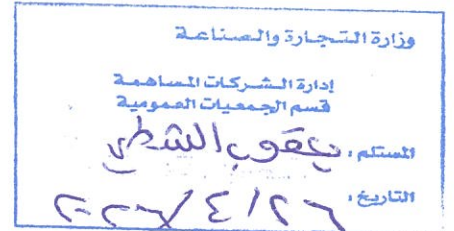 وزارة التجارة والصناعة
إدارة الشركات المساهمة
قسم الجمعيات العمومية
المستلم: يعقوب الشطي
التاريخ: ٢٠٢٦/٤/٢٦